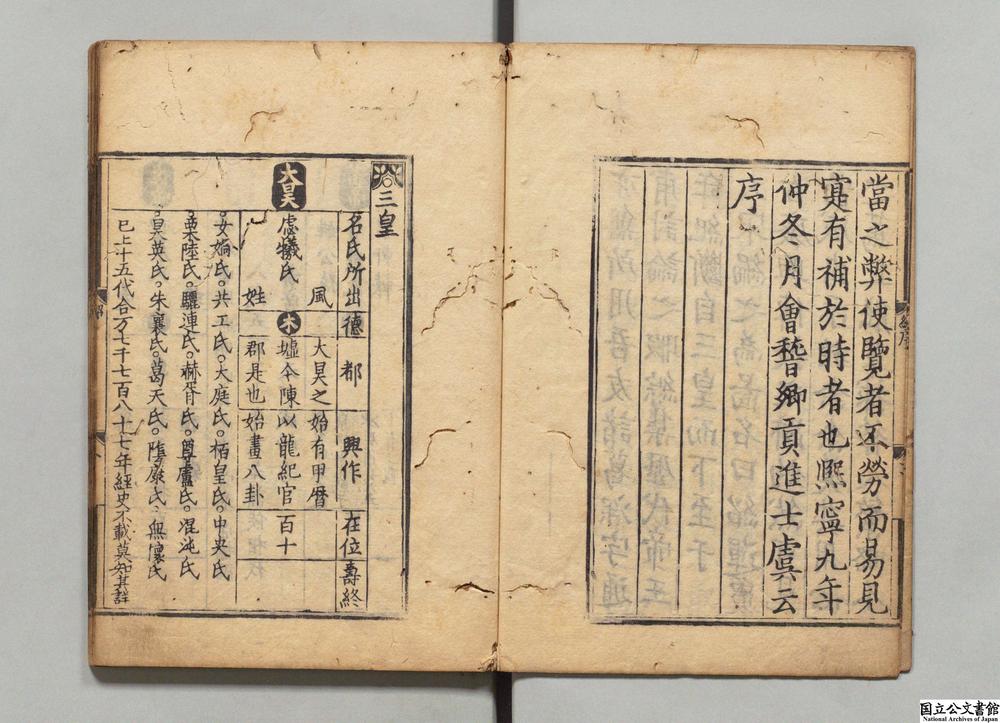 當之弊使覽者不勞而易見
寔有補於時者也熈寧九年
仲冬月會稽鄉貢進士虞云
序
三皇
名氏所出 德 都 興作 在位 壽終
大昊
虙犧氏 風姓 木 大昊之墟今陳郡是也 始有甲暦以龍紀官始畫八卦 百十
女媧氏。共工氏。大庭氏。栢皇氏。中央氏
栗陸氏。驪連氏。赫胥氏。尊盧氏。混沌氏
昊英氏。朱襄氏。葛天氏。隂康氏。無懷氏
已上十五代合万七千七百八十七年經史不載莫知其詳
国立公文書館
National Archives of Japan